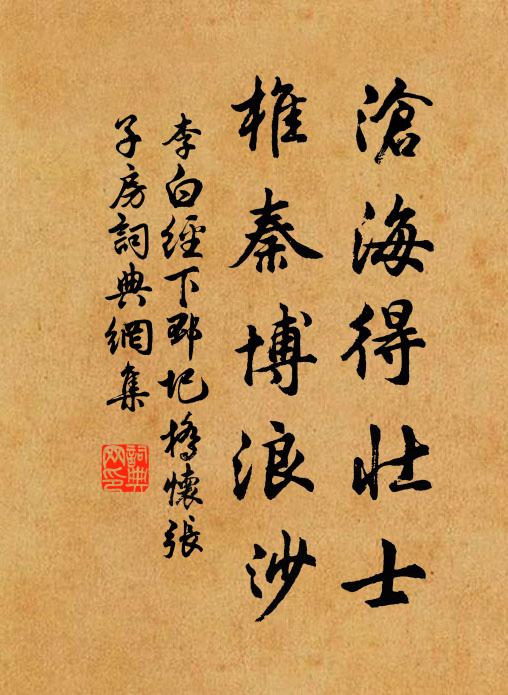 滄海得壯士
椎秦博浪沙
李白經下邳圯橋懷張
子房詞典網集
詞典
网印